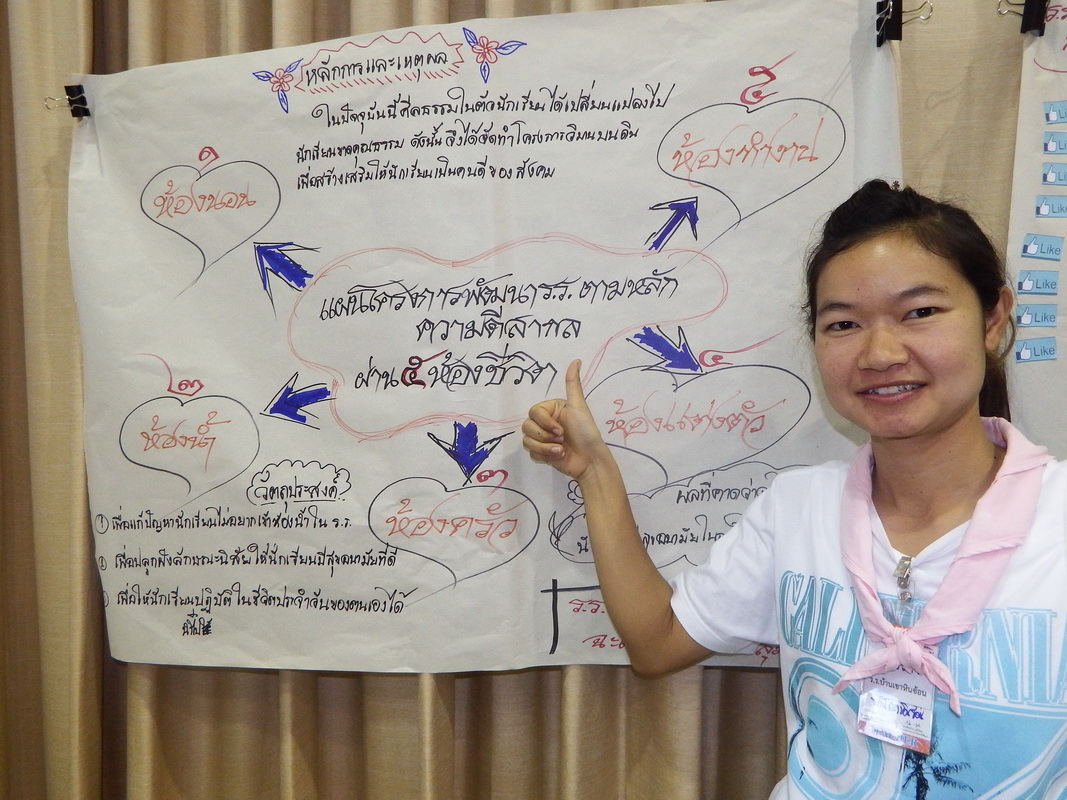 หลักการและเหตุผล
ในปัจจุบันนี้ศีลธรรมในตัวนักเรียนได้เปลี่ยนแปลงไป
นักเรียนขาดคุณธรรม ดังนั้นจึงได้จัดทำโครงการวิมานบนดิน
เพื่อสร้างเสริมให้นักเรียนเป็นคนดีของสังคม
๑
ห้องนอน
๕
ห้องทำงาน
แผนโครงการพัฒนาร.ร.ตามหลัก
ความดีสากล
ผ่าน ๕ ห้องชีวิต
๒
ห้องน้ำ
๔
ห้องแต่งตัว
๓
ห้องครัว
วัตถุประสงค์
① เพื่อแก้ปัญหานักเรียนไม่อยากเข้าห้องน้ำใน ร.ร.
② เพื่อปลูกฝังลักษณะนิสัยให้นักเรียนมีสุขอนามัยที่ดี
เพื่อให้นักเรียนปฏิบัติในชีวิตประจำวันของตนเองได้
ผลที่คาดว่า
ร.ร.
Like
Like
Like
Like
Like
CALIFORNIA
ร.ร.บ้านเขาหินซ้อน